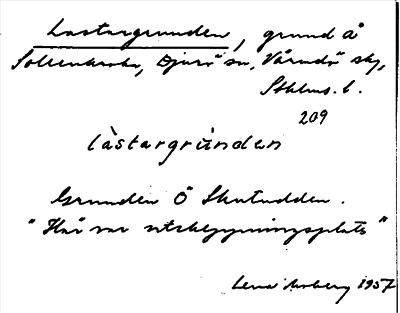 Lastargrunden, grund å
Sollenkroka, Djurö sn, Värmdö skg,
Sthlms l.
209
làstargrùnden
Grunden Ö Skutudden.
"Här var utskeppningsplats"
Lena Moberg 1957